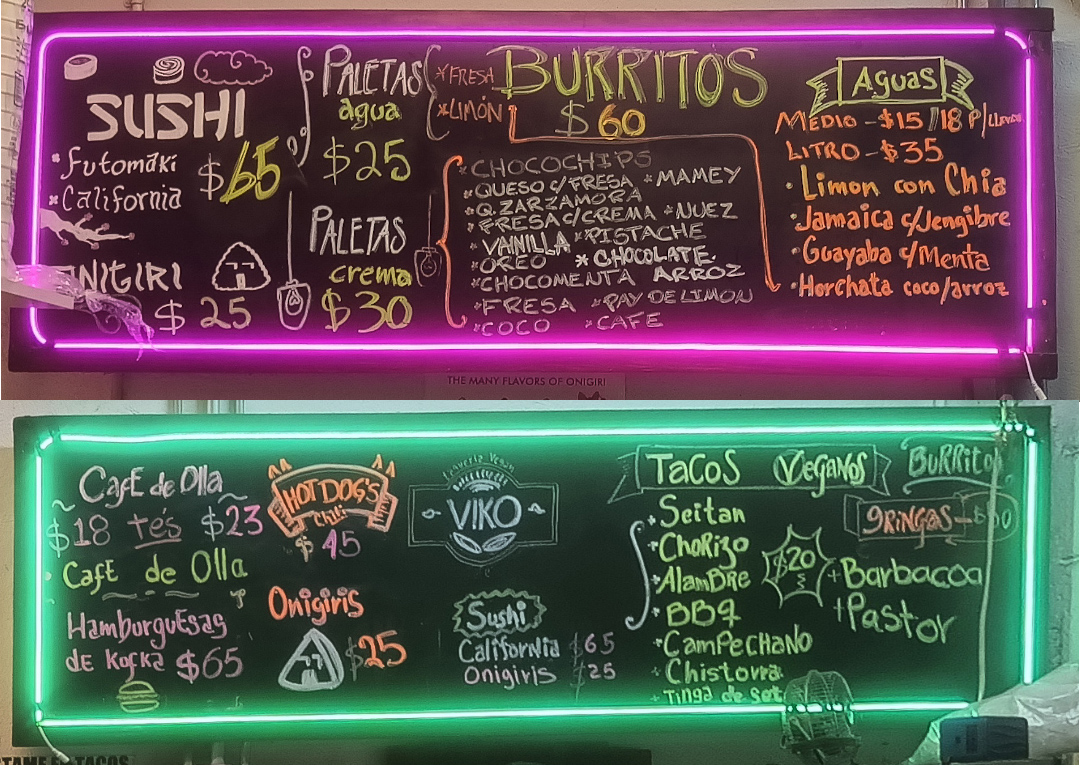 SUSHI
*Futomaki
*California
$65
ONIGIRI
$25
PALETAS
agua
$25
*FRESA
*LIMÓN
PALETAS
crema
$30
BURRITOS
$60
*CHOCOCHIPS
*QUESO c/FRESA *MAMEY
*Q.ZARZAMORA
*FRESA c/CREMA *NUEZ
*VANILLA *PISTACHE
*OREO *CHOCOLATE.
*CHOCOMENTA ARROZ
*FRESA *PAY DE LIMON
*COCO *CAFE
Aguas
MEDIO-$15/18 P/LLEVAR
LITRO-$35
·Limon con Chia
·Jamaica c/Jengibre
·Guayaba c/Menta
·Horchata coco/arroz
THE MANY FLAVORS OF ONIGIRI
Café de Olla
$18 tés $23
Café de Olla
Hamburguesas
de Kofka $65
HOT DOG'S
Chili
$45
Onigiris
$25
VIKO
Sushi
California $65
Onigiris $25
TACOS VEGANOS
*Seitan
*Chorizo
*Alambre
*BBQ
*Campechano
*Chistorra
*Tinga de set
$20
Burrito
GRINGAS-$50
+Barbacoa
+Pastor